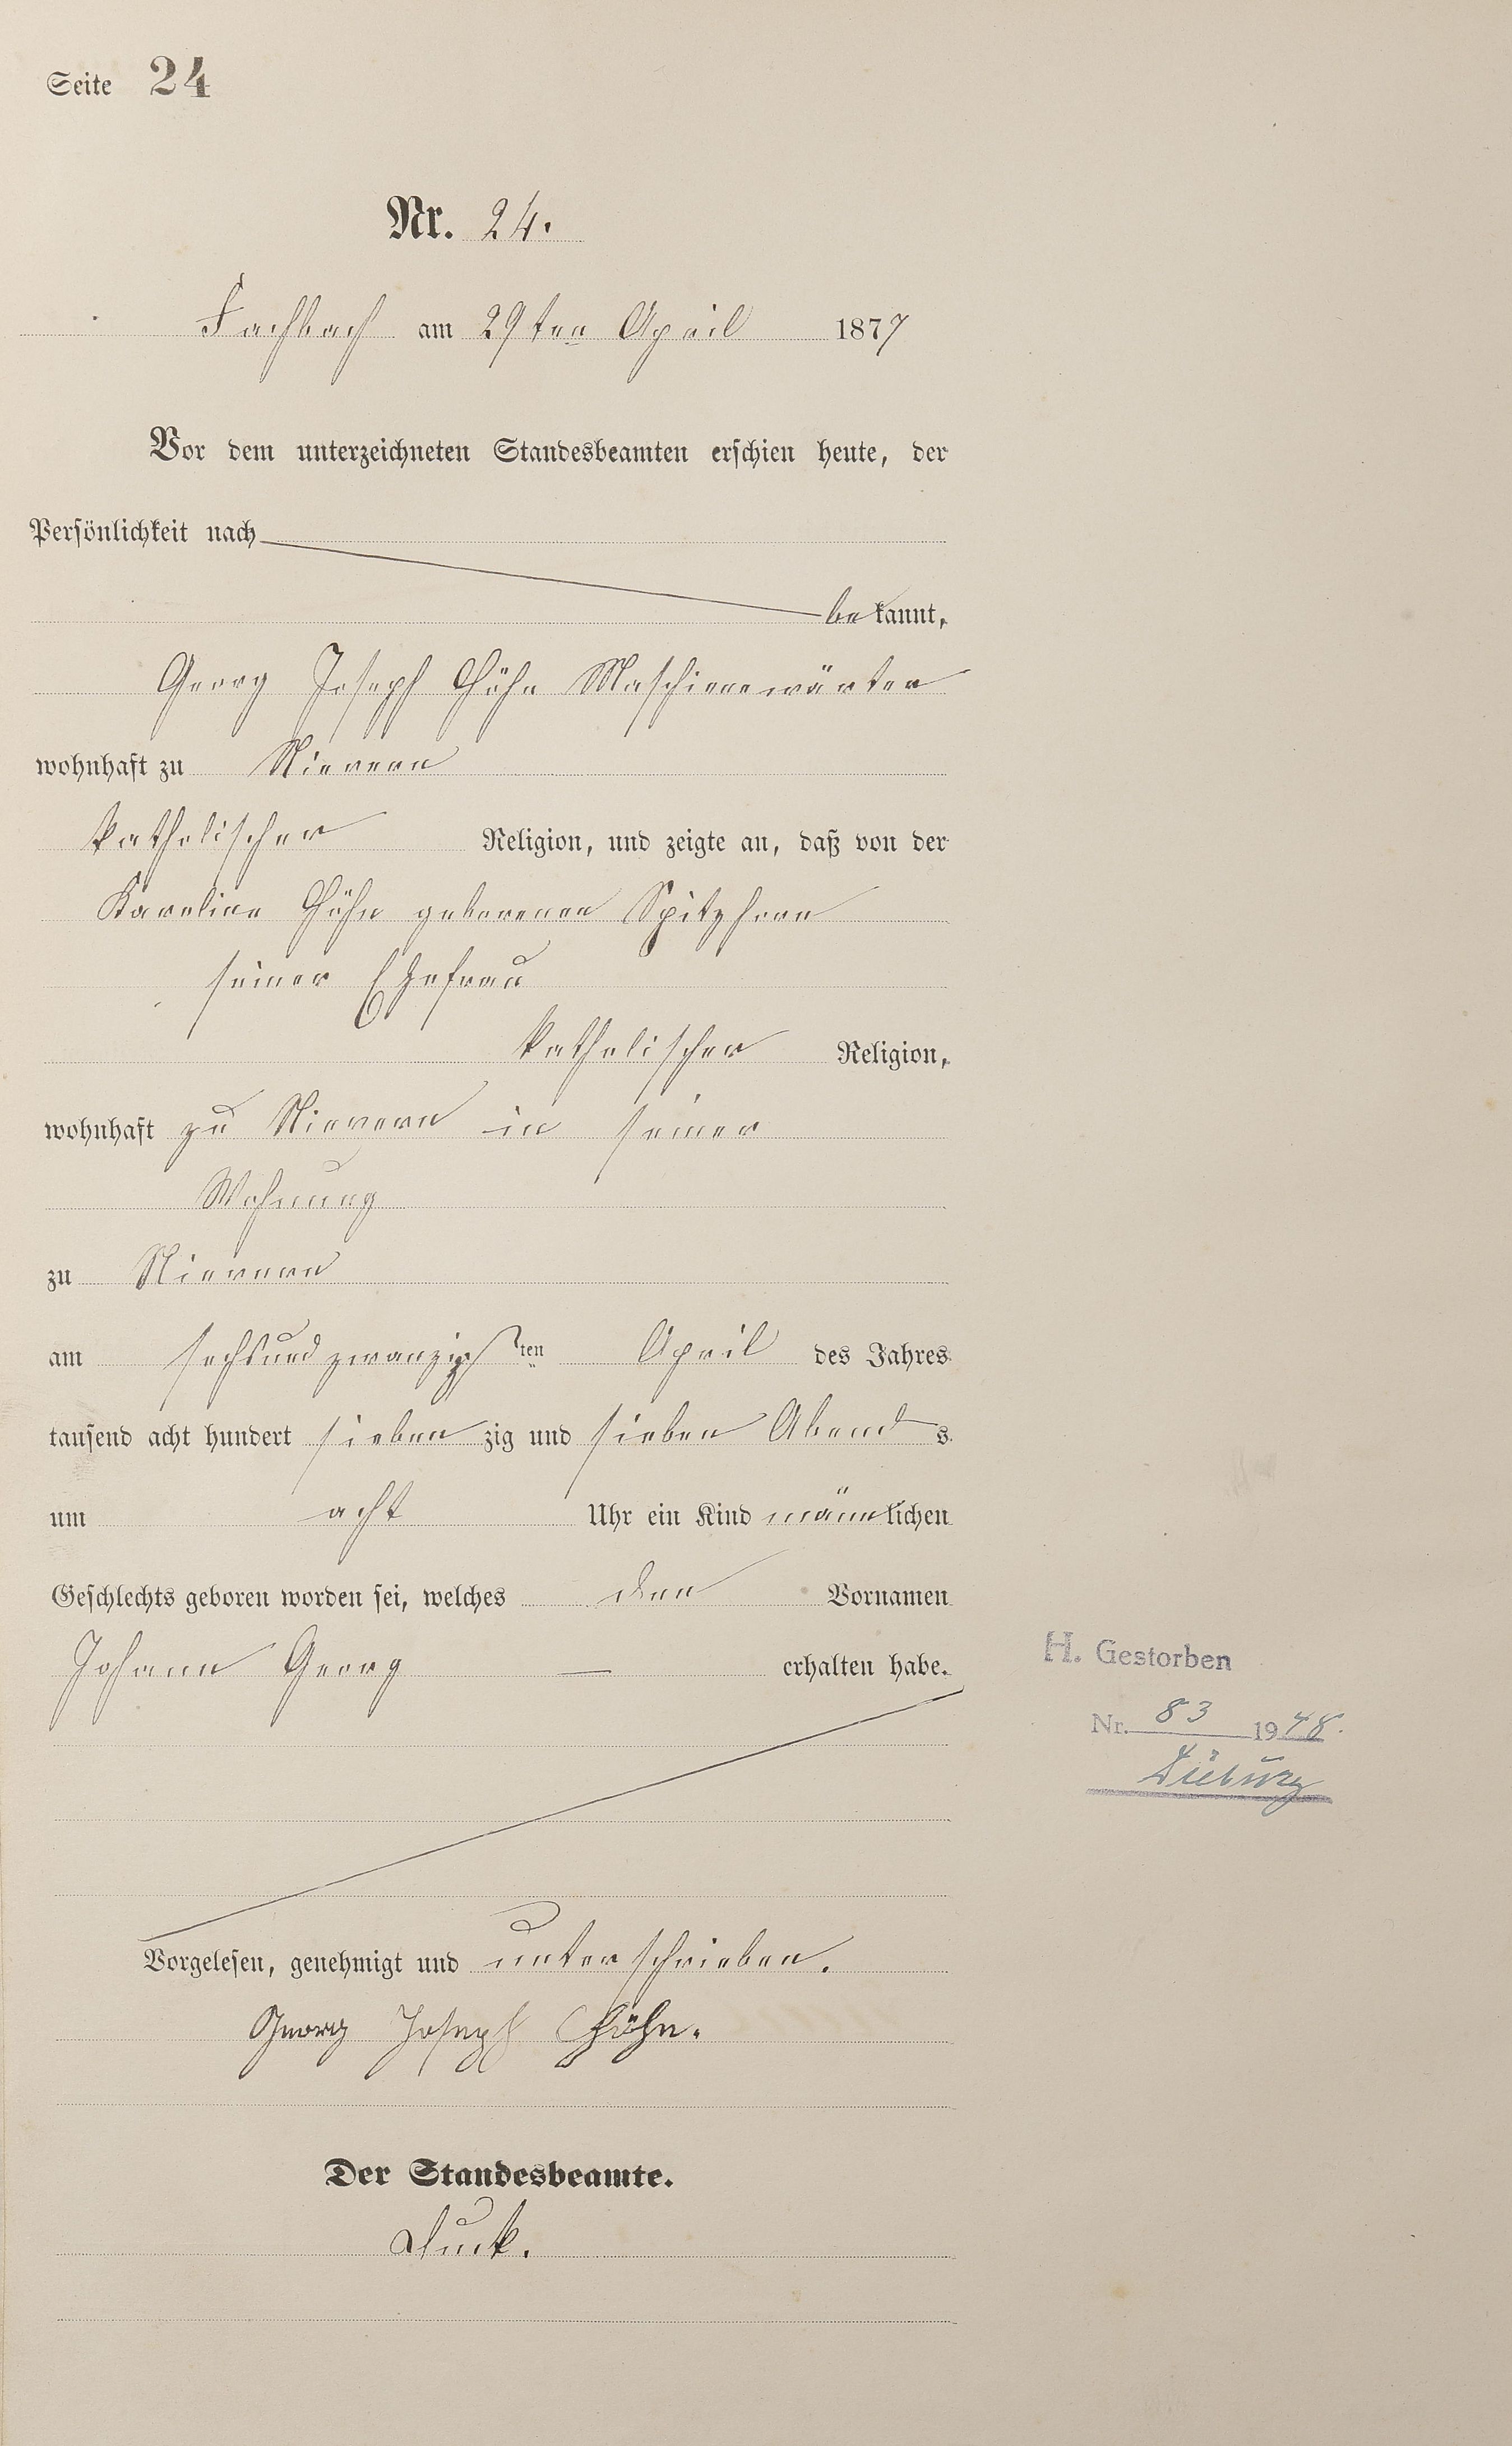 Seite 24
Nr. 24.
Fachbach am 29ten April 1877
Vor dem unterzeichneten Standesbeamten erschien heute, der
Persönlichkeit nach
bekannt,
Georg Joseph Höhn Maschienewärter
wohnhaft zu Nievern
katholischer Religion, und zeigte an, daß von der
Karoline Höhn geborenen Spitzhorn
seiner Ehefrau
katholischer Religion,
wohnhaft zu Nievern in seiner
Wohnung
zu Nievern
am sechsundzwanzigsten April des Jahres
tausend acht hundert siebenzig und sieben Abends
um acht Uhr ein Kind männlichen
Geschlechts geboren worden sei, welches den Vornamen
Johann Georg — erhalten habe.
H. Gestorben
Nr. 83 1948.
Dieburg
Vorgelesen, genehmigt und unterschrieben.
Georg Joseph Höhn.
Der Standesbeamte.